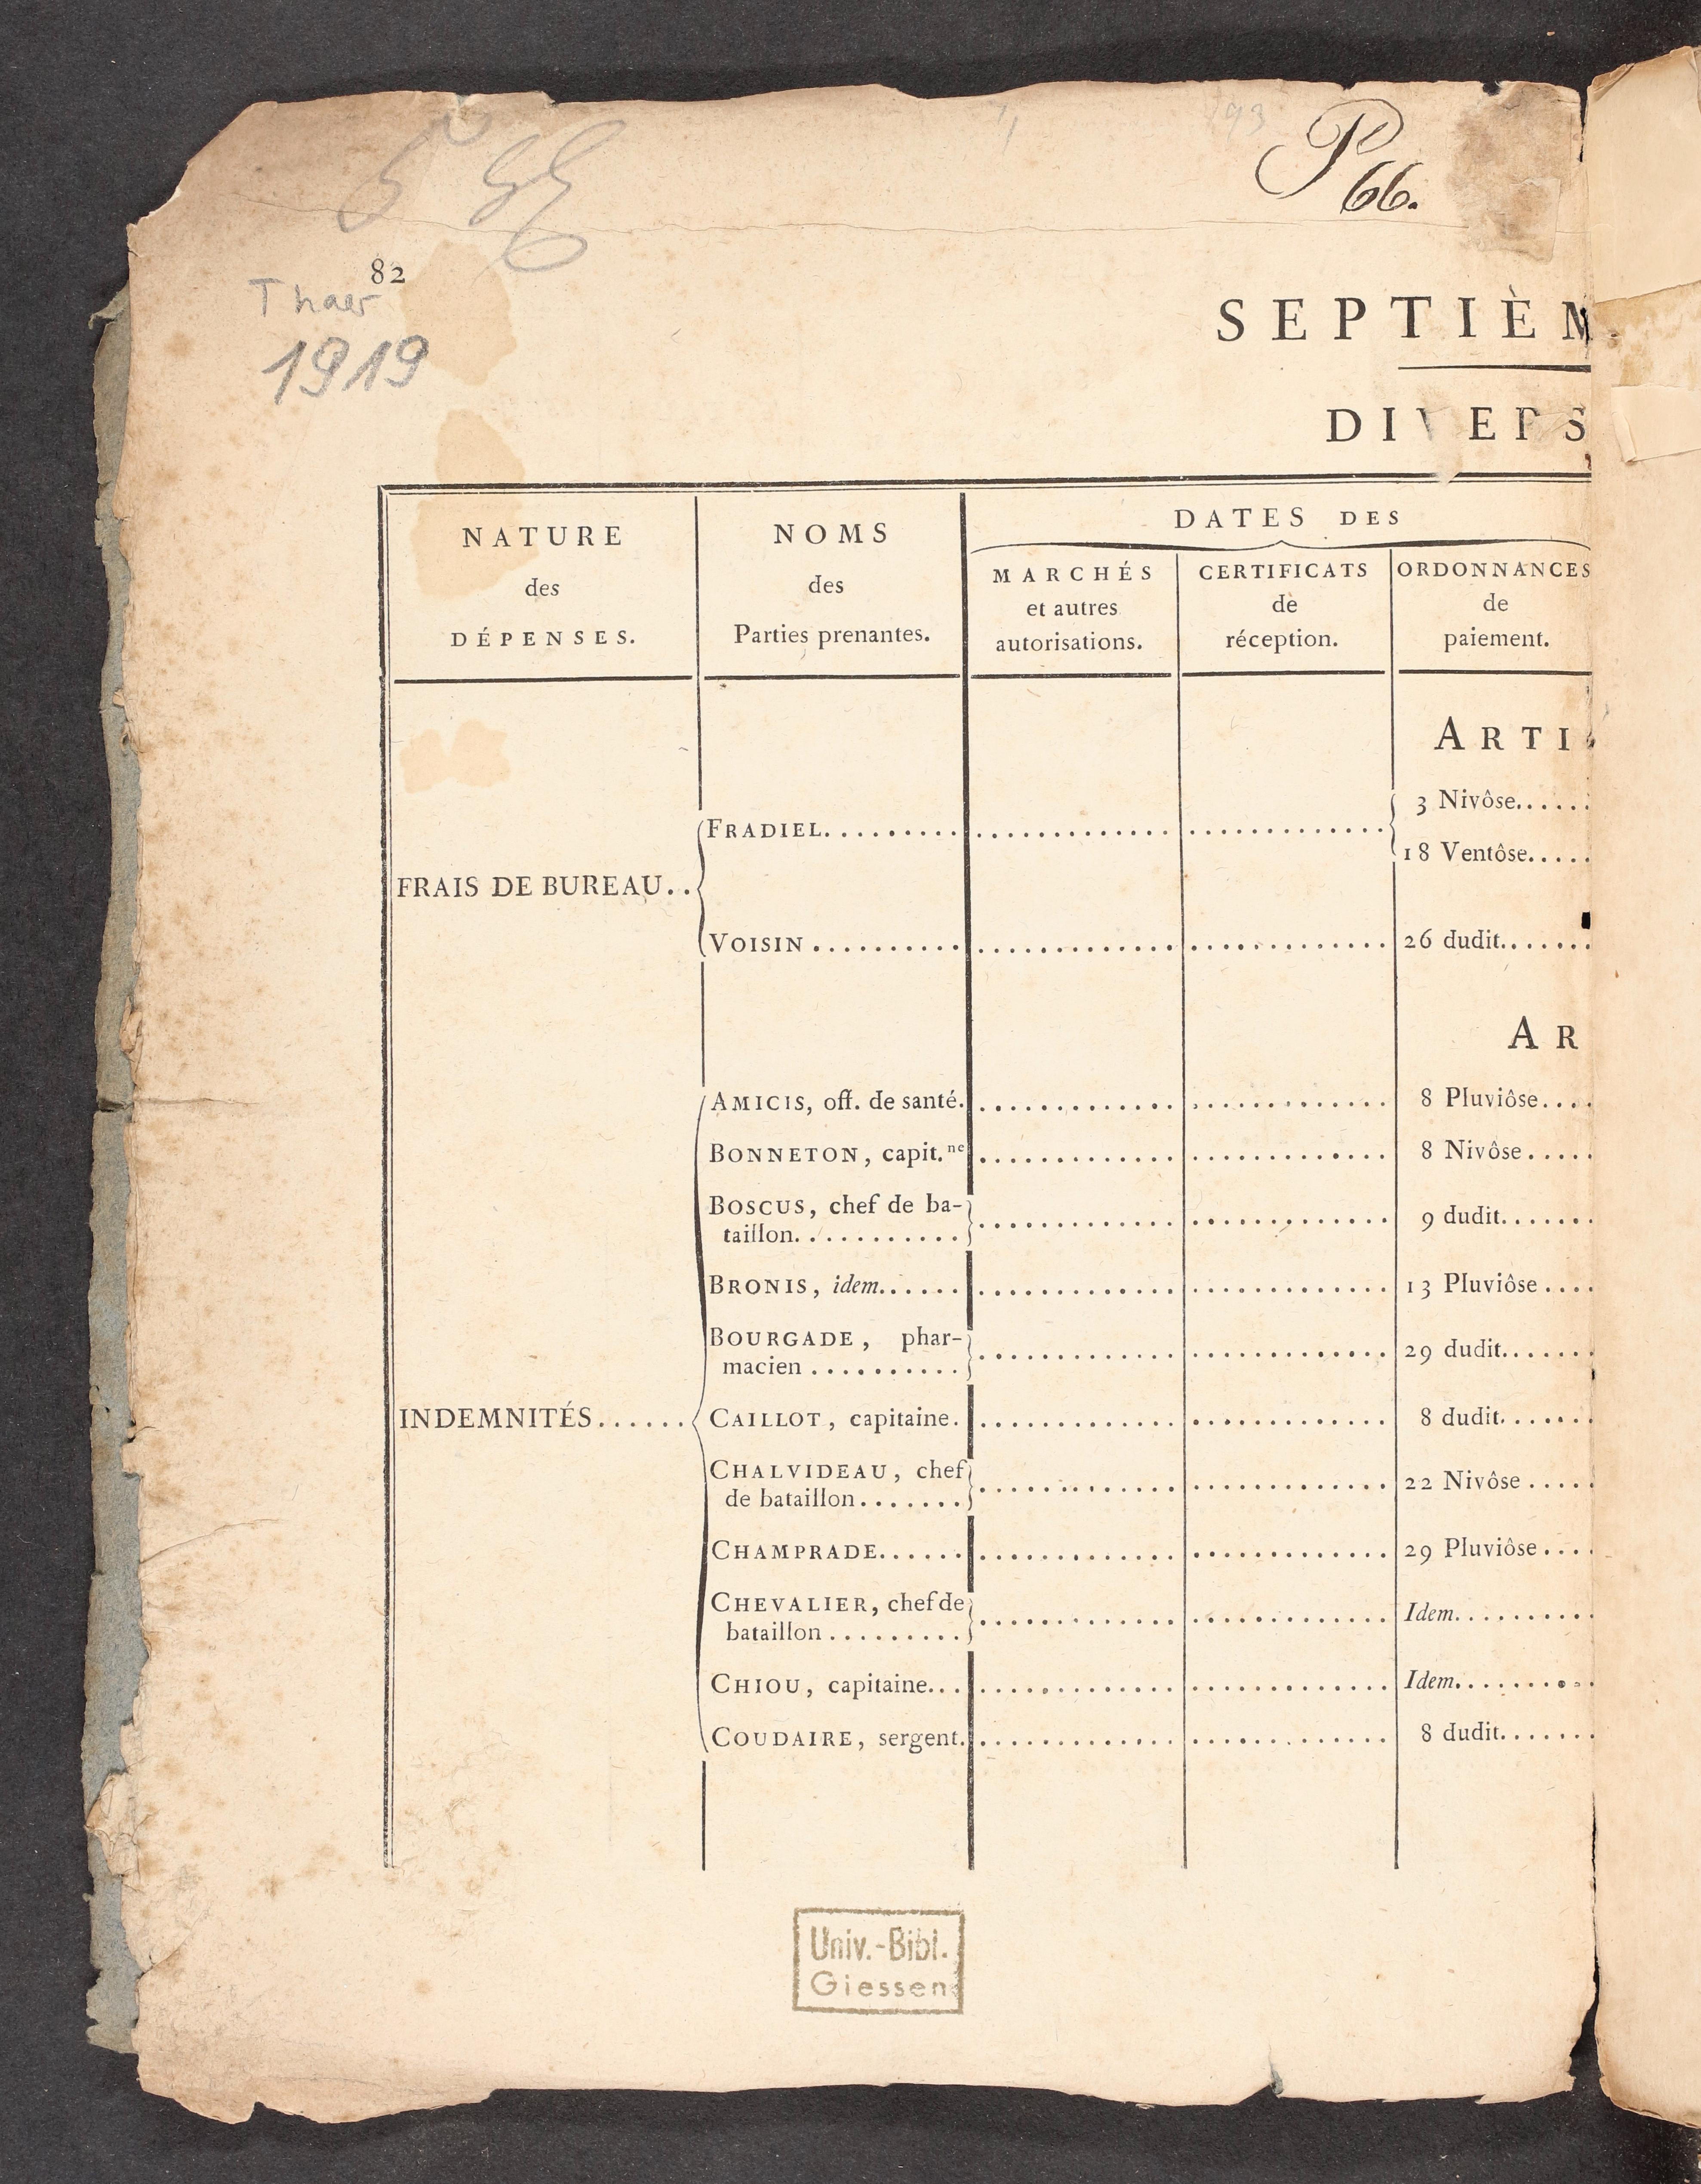 P
66.
82
Thaer
1919
SEPTIÈM
DIVERS
NATURE
des
DÉPENSES.
NOMS
des
Parties prenantes.
DATES DES
MARCHÉS
et autres
autorisations.
CERTIFICATS
de
réception.
ORDONNANCES
de
paiement.
ARTI
FRAIS DE BUREAU..
FRADIEL.......... 3 Nivôse......
18 Ventôse.....
VOISIN .......... 26 dudit.......
AR
INDEMNITÉS......
AMICIS, off. de santé. 8 Pluviôse....
BONNETON, capit.ne 8 Nivôse.....
BOSCUS, chef de ba-
taillon............ 9 dudit.......
BRONIS, idem...... 13 Pluviôse....
BOURGADE, phar-
macien .......... 29 dudit.......
CAILLOT, capitaine. 8 dudit.......
CHALVIDEAU, chef
de bataillon....... 22 Nivôse.....
CHAMPRADE...... 29 Pluviôse....
CHEVALIER, chef de
bataillon ......... Idem..........
CHIOU, capitaine... Idem..........
COUDAIRE, sergent. 8 dudit.......
Univ.-Bibl.
Giessen